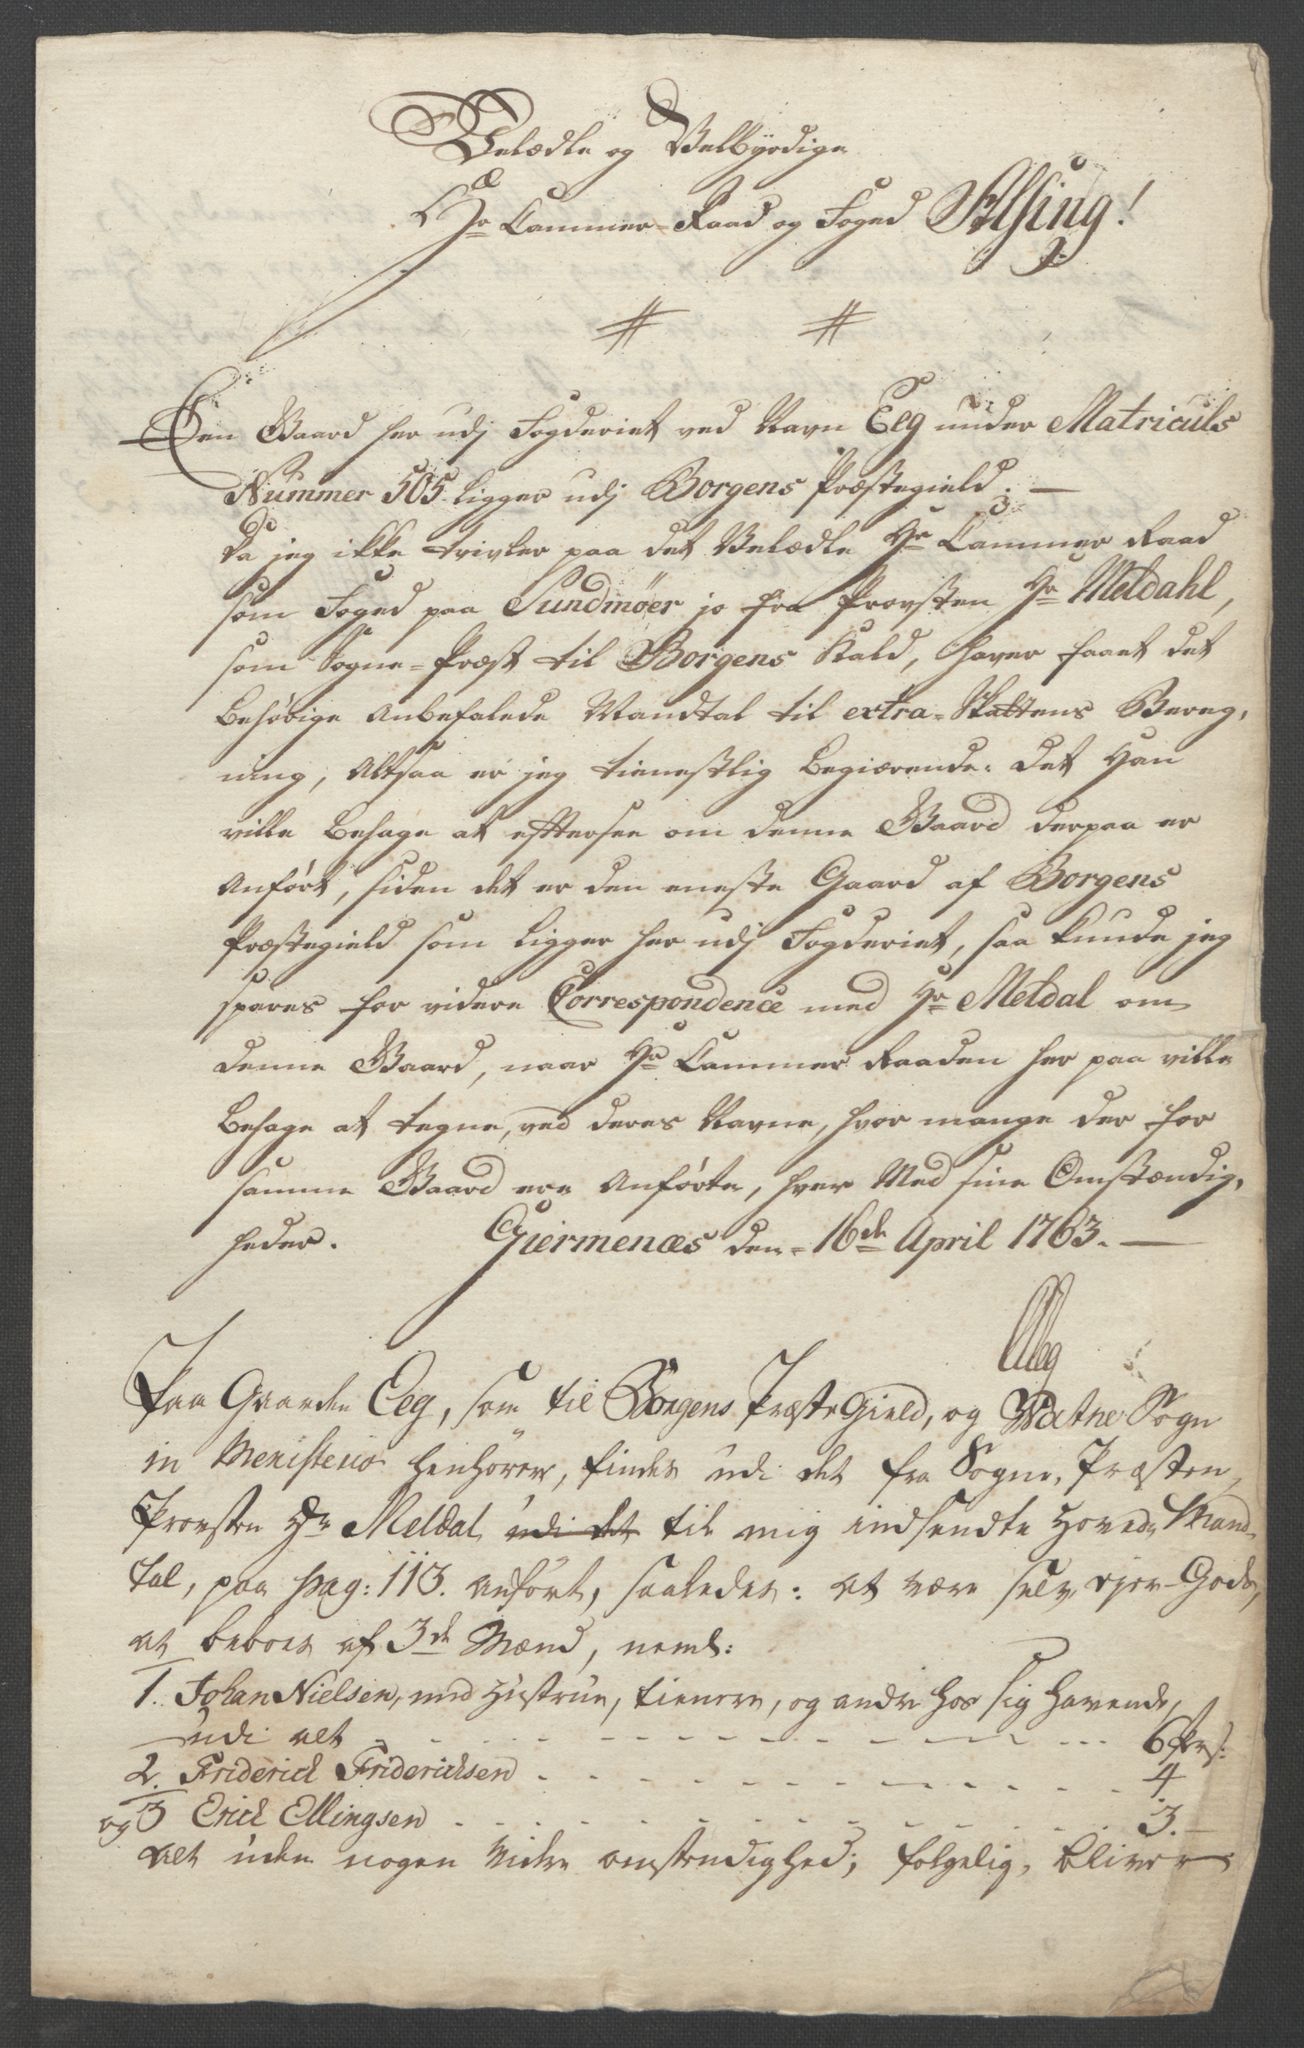 Velædle og Velbyrdige
Hr Cammer-Raad og Foged Alsing!
Een Gaard her udj Fogderiet ved Navn Eeg under Matriculs
Nummer 505 ligger udj Borgens Præstegield. —
Da jeg ikke tvivler paa det Velædle Hr Cammer Raad
som Foged paa Sundmøer jo fra Provsten Hr Meldahl,
som Sogne-Præst til Borgens Kald, haver faaet det
behørige anbefalede Mandtal til extra-Skattens Bereg-
ning, Altsaa er jeg tienestlig begiærende: det Han
ville behage at efftersee om denne Gaard derpaa er
anført, siden det er den eneste Gaard af Borgens
Præstegield som ligger her udj Fogderiet, saa kunde jeg
spares for videre Correspondence med Hr Meldal om
denne Gaard, naar Hr Cammer Raaden her paa ville
behage at tegne, ved deres Navne, hvor mange der for
samme Gaard ere anførte, hver Med sine Omstændig-
heder. Giermenæs den 16de April 1763. —
Paa Gaarden Eeg, som til Borgens PræsteGield, og Vatne Sogn
in Menisterio henhører, findes udi det fra Sogne-Præsten
Provsten Hr Meldal udi det til mig indsendte Hoved-Mand-
tal, paa pag: 113. anført, saaledes: at være selv ejer-Gods,
at beboes af 3de Mænd, neml:
1. Johan Nielsen, med Hustrue, tienere, og andre hos sig havende,
udi alt - - - 6 Pers:
2. Friderick Fridericksen - - - 4
og 3 Erick Ellingsen - - - 3. —
alt uden nogen videre omstendighed; følgelig, bliver